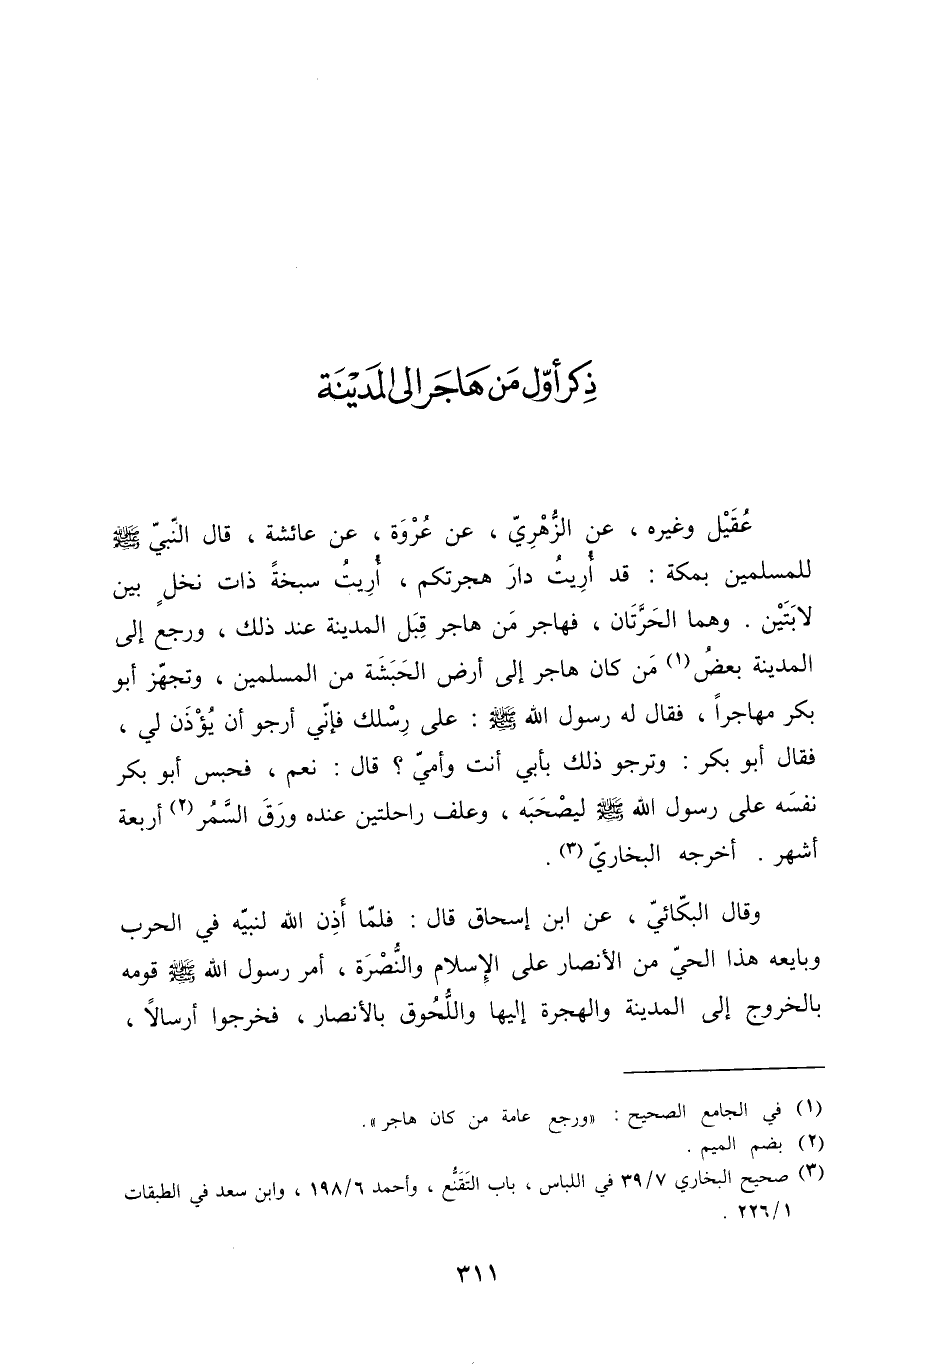 ذِكر أوّل مَن هَاجَر الى المَدِيْنَة
عُقَيْل وغيره ، عن الزُّهْرِيّ ، عن عُرْوَة ، عن عائشة ، قال النّبيّ ﷺ
للمسلمين بمكة : قد أُرِيتُ دارَ هجرتكم ، أُرِيتُ سبخةً ذات نخلٍ بين
لابَتَيْن . وهما الحَرَّتَان ، فهاجر مَن هاجر قِبَل المدينة عند ذلك ، ورجع إلى
المدينة بعضُ (١) مَن كان هاجر إلى أرض الحَبَشَة من المسلمين ، وتجهّز أبو
بكر مهاجراً ، فقال له رسول الله ﷺ : على رِسْلك فإنّي أرجو أن يُؤْذَن لي ،
فقال أبو بكر : وترجو ذلك بأبي أنت وأميّ ؟ قال : نعم ، فحبس أبو بكر
نفسَه على رسول الله ﷺ ليصْحَبَه ، وعلف راحلتين عنده ورَقَ السَّمُر (٢) أربعة
أشهر . أخرجه البخاريّ (٣) .
وقال البكّائيّ ، عن ابن إسحاق قال : فلمّا أَذِن الله لنبيّه في الحرب
وبايعه هذا الحيّ من الأنصار على الإِسلام والنُّصْرَة ، أمر رسول الله ﷺ قومه
بالخروج إلى المدينة والهجرة إليها واللُّحُوق بالأنصار ، فخرجوا أرسالاً ،
(١) في الجامع الصحيح : «ورجع عامة من كان هاجر» .
(٢) بضم الميم .
(٣) صحيح البخاري ٣٩/٧ في اللباس ، باب التَقَنُّع ، وأحمد ١٩٨/٦ ، وابن سعد في الطبقات
٢٢٦/١ .
٣١١